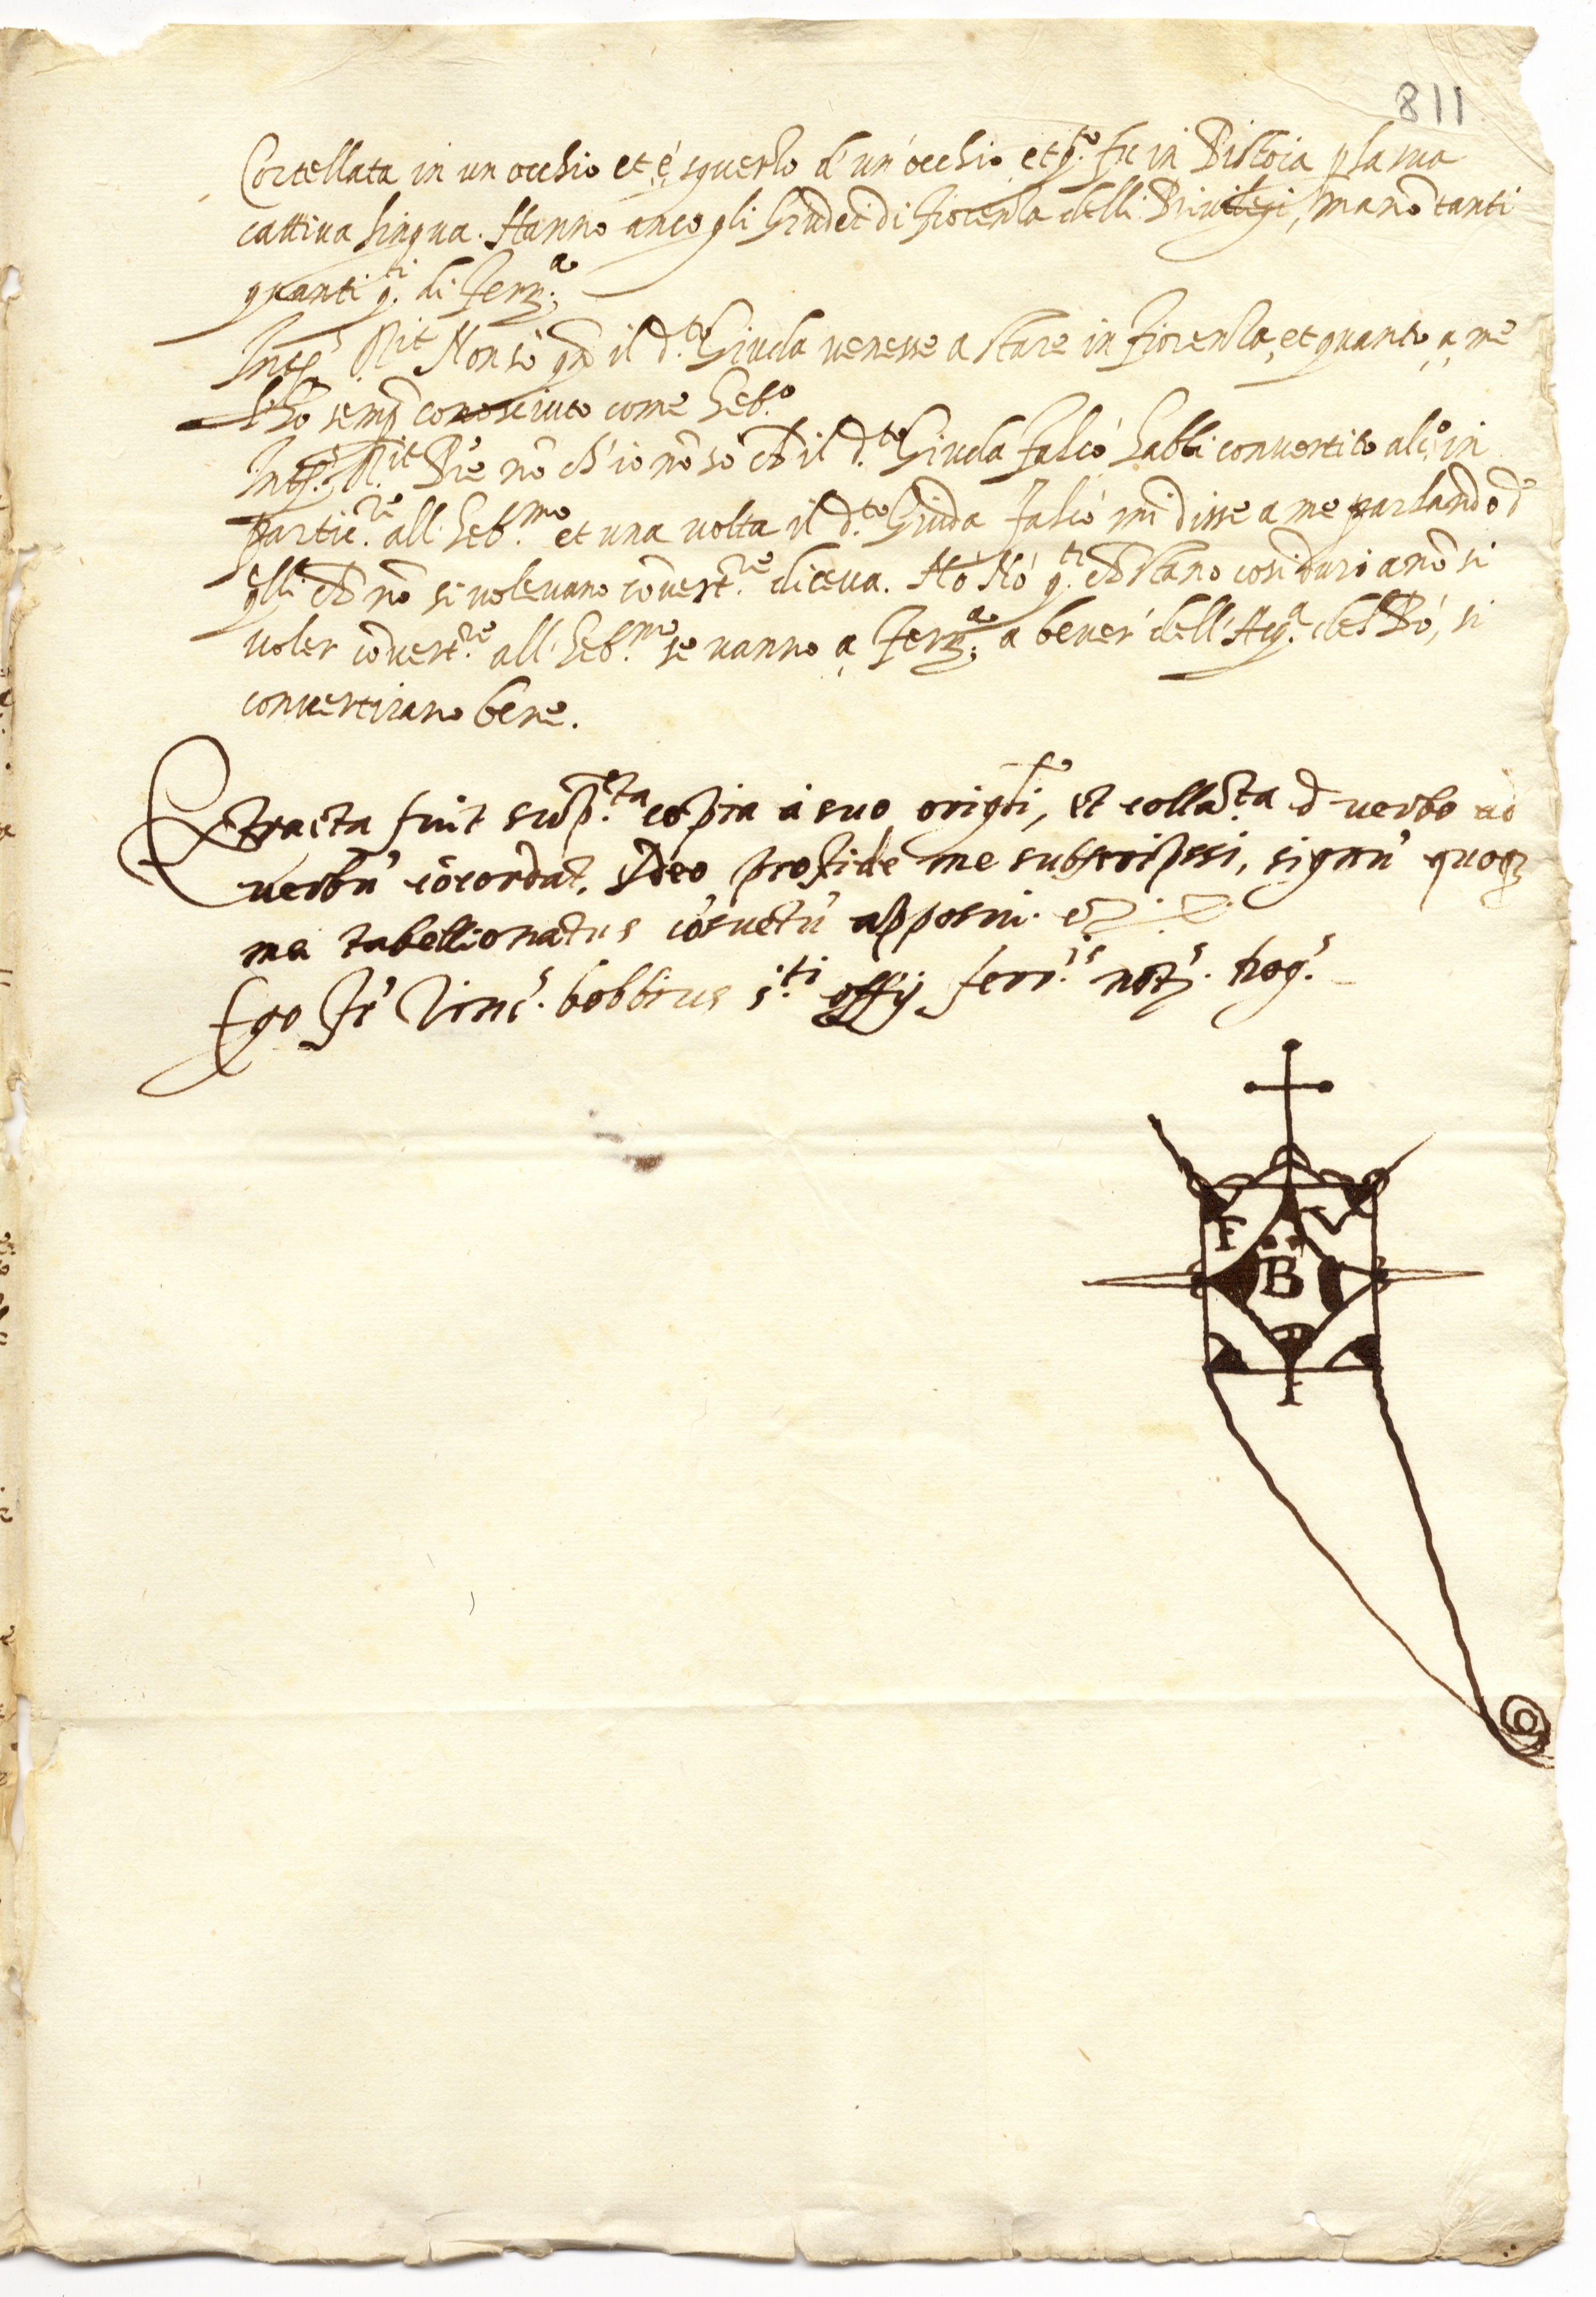 811
Cortellata in un occhio et è sguerzo d'un occhio et q.to fu in Pistoia p la sua
cattiva lingua. Hanno anco gli Giudei di Fiorenza delli Privilegi, ma nō tanti
quanti q.ti di Ferr.a
Int.s R.it Non sò qñ il d.to Giuda venesse a stare in Fiorenza, et quanto a me
l'hò semp conosciuto come heb.o
Int.s R.it P.re nō ch'io nō sò ch il d.to Giuda Falcò habbi convertito alc.o in
partic.re all heb.mo et una volta il d.to Giuda Falcò mi disse a me parlando d
q̄lli ch nō si volevano cōvert.re diceva. Hò Hò q.ti ch stano cosi duri a nō si
voler cōvert.re all heb.mo se vanno a Ferr.a a bever dell'Acq.a del Pò, si
convertirano bene.
Extracta fuit sup.ta copia à suo orig.li, et collacta d verbo ad
verbū cōcordat. Ideo pro fide me subscripsi, signū quoq
me tabellionatus cōsuetū apposui.
Ego Fr Vinc.s bobbius s.ti offij ferr.is not.s rog.s
F V
B